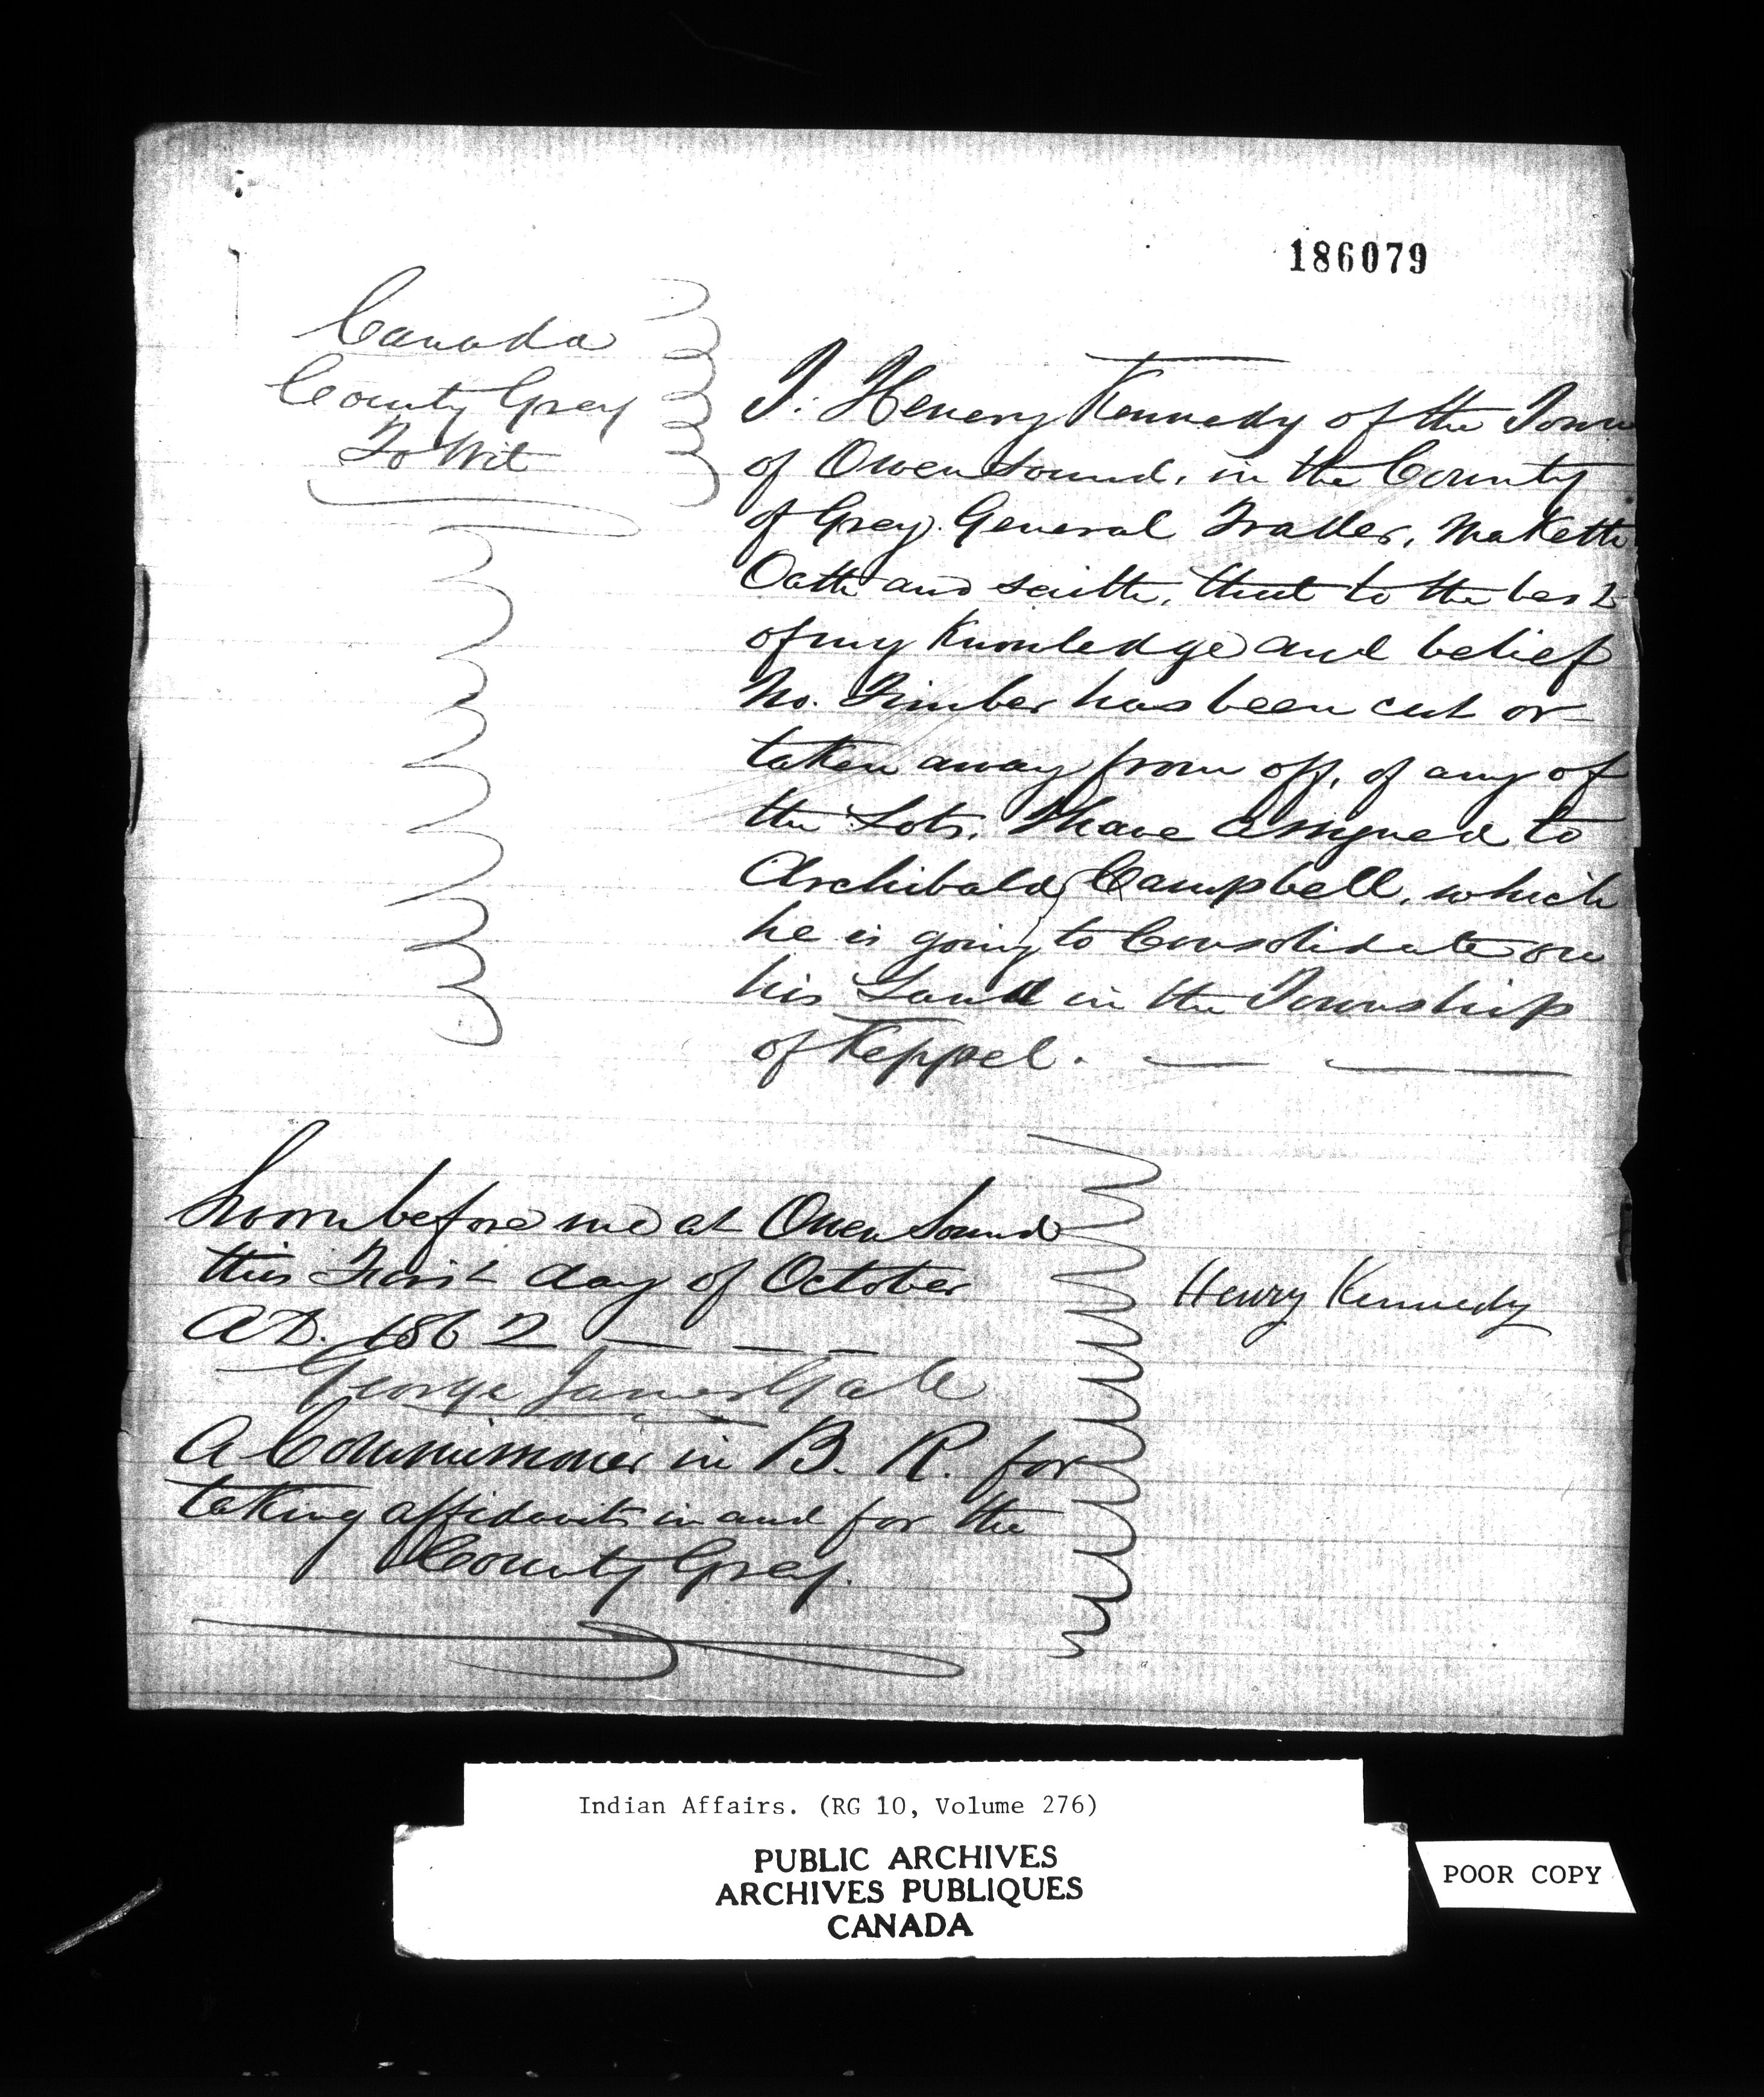 186079
Canada
County Grey
To Wit
I. Henery Kennedy of the Town
of Owen Sound, in the County
of Grey. General Trader, Maketh
Oath and saith, that to the best
of my Knowledge and belief
No. Timber has been cut or
taken away from off, of any of
the Lots. I have assigned to
Archibald Campbell, which
he is going to Consolidate on
his Land in the Township
of Keppel.
Sworn before me at Owen Sound
this First day of October
A D. 1862
Henry Kennedy
George James Gale
A Commissioner in B. R. for
taking affidavits in and for the
County Grey.
Indian Affairs. (RG 10, Volume 276)
PUBLIC ARCHIVES
ARCHIVES PUBLIQUES
CANADA
POOR COPY